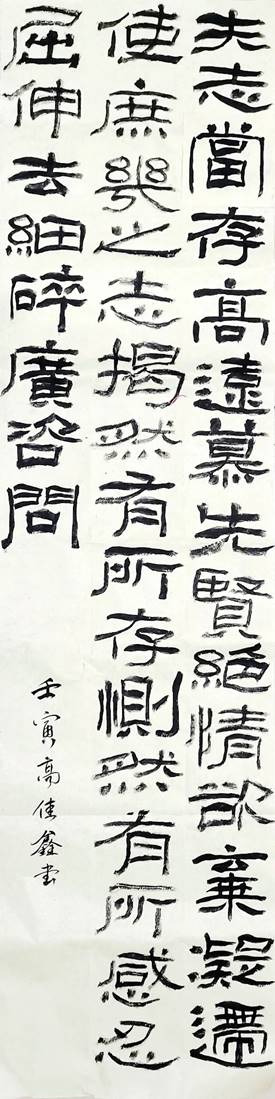 夫志當存高遠慕先賢絕情欲棄凝滯
使庶幾之志揭然有所存惻然有所感忍
屈伸去細碎廣咨問
壬寅高佳鑫书